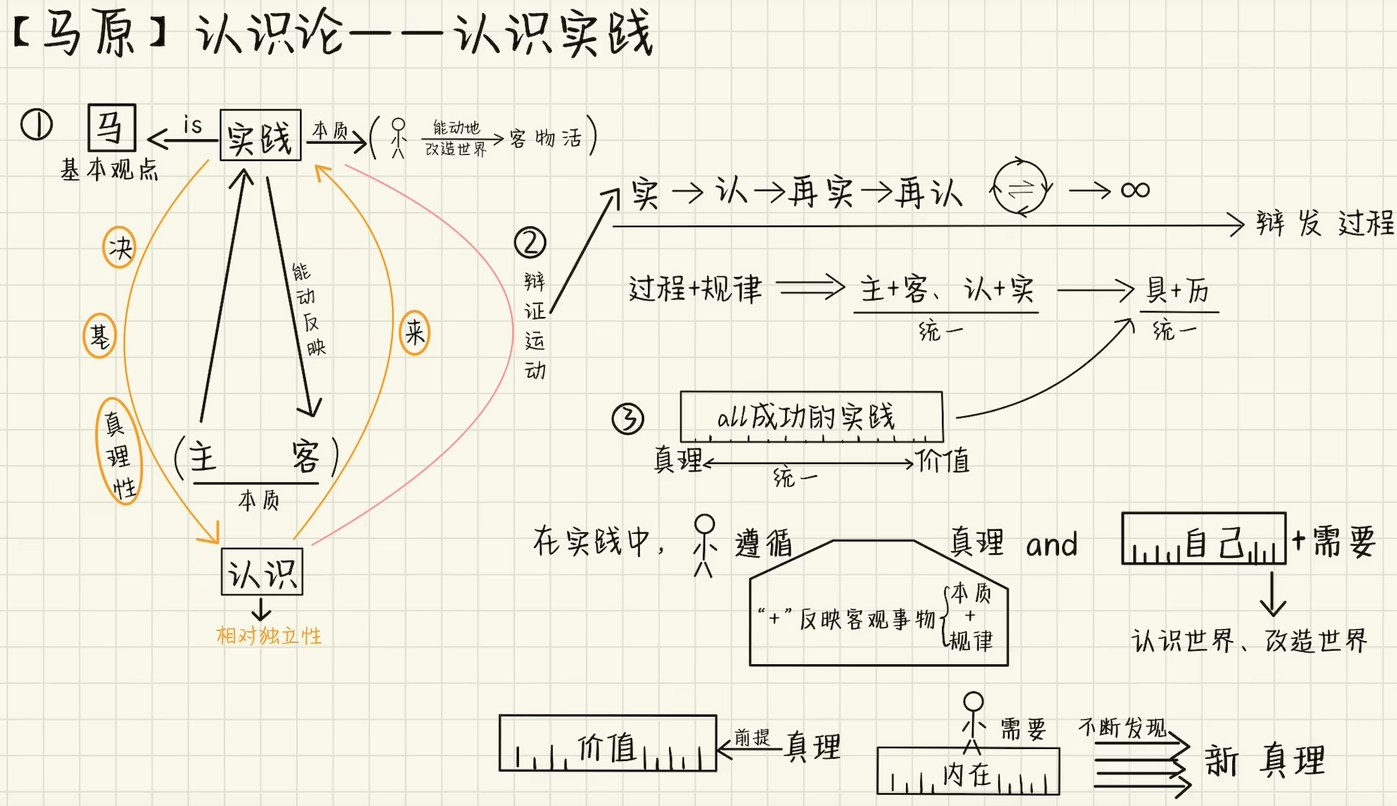 【马原】认识论——认识实践
① 马 is 实践 本质 ( 能动地 改造世界 客物活 )
基本观点
决
基
真理性
能动反映
来
(主 客)
本质
认识
相对独立性
② 辩证运动
实→认→再实→再认 ⇌ →∞
辩发过程
过程+规律 主+客、认+实 具+历
统一 统一
③ all成功的实践
真理 统一 价值
在实践中, 遵循 真理 and 自己+需要
“+”反映客观事物{本质+规律
认识世界、改造世界
价值 前提 真理
需要
内在
不断发现
新真理